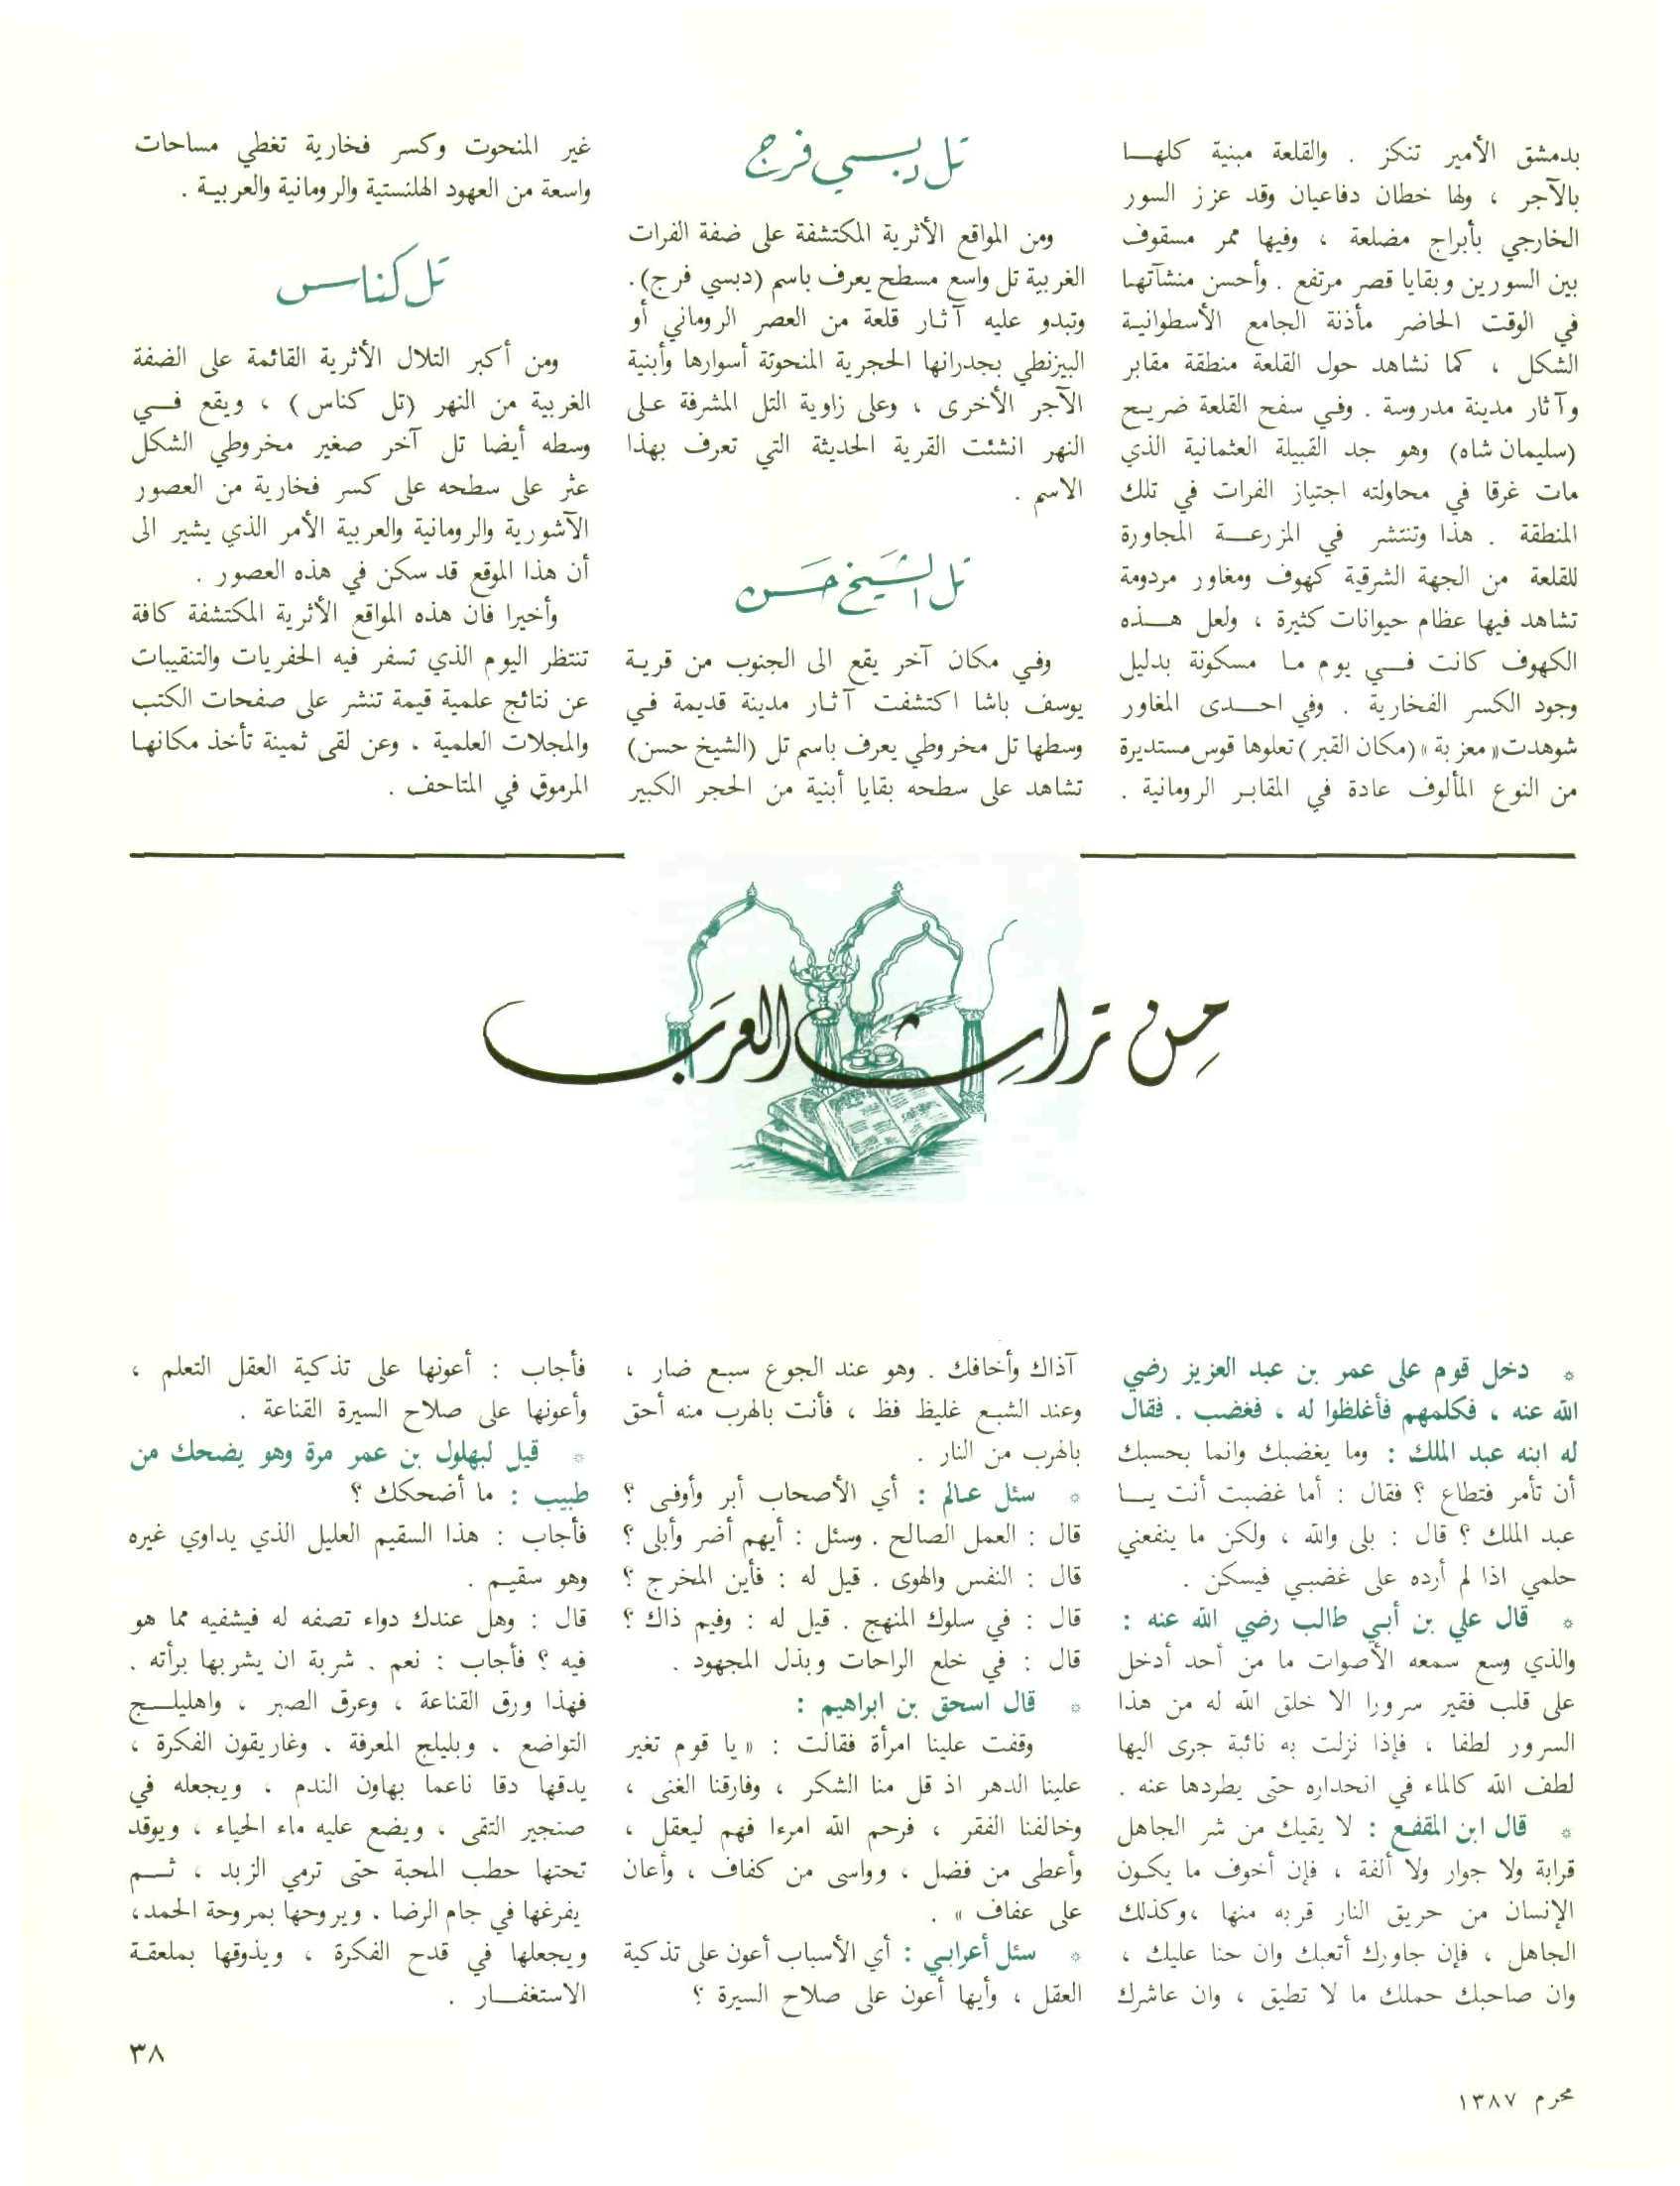 بدمشق الأمير تنكز . والقلعة مبنية كلهـا
بالآجر ، ولها خطان دفاعيان وقد عزز السور
الخارجي بأبراج مضلعة ، وفيها ممر مسقوف
بين السورين وبقايا قصر مرتفع . وأحسن منشآتها
في الوقت الحاضر مأذنة الجامع الأسطوانية
الشكل ، كما نشاهد حول القلعة منطقة مقابر
وآثار مدينة مدروسة . وفي سفح القلعة ضريح
(سليمان شاه) وهو جد القبيلة العثمانية الذي
مات غرقا في محاولته اجتياز الفرات في تلك
المنطقة . هذا وتنتشر في المزرعـة المجاورة
للقلعة من الجهة الشرقية كهوف ومغاور مردومة
تشاهد فيها عظام حيوانات كثيرة ، ولعل هـذه
الكهوف كانت فـي يوم ما مسكونة بدليل
وجود الكسر الفخارية . وفي احـدى المغاور
شوهدت« معزبة »(مكان القبر) تعلوها قوس مستديرة
من النوع المألوف عادة في المقابر الرومانية .
تل دبسي فرج
ومن المواقع الأثرية المكتشفة على ضفة الفرات
الغربية تل واسع مسطح يعرف باسم (دبسي فرج).
وتبدو عليه آثـار قلعة من العصر الروماني أو
البيزنطي بجدرانها الحجرية المنحوتة أسوارها وأبنية
الآجر الأخرى ، وعلى زاوية التل المشرفة علـى
النهر انشئت القرية الحديثة التي تعرف بهذا
الاسم .
تل الشَيخ حَسن
وفي مكان آخر يقع الى الجنوب من قريـة
يوسف باشا اكتشفت آثـار مدينة قديمة فـي
وسطها تل مخروطي يعرف باسم تل (الشيخ حسن)
تشاهد على سطحه بقايا أبنية من الحجر الكبير
غير المنحوت وكسر فخارية تغطي مساحات
واسعة من العهود الهلنستية والرومانية والعربيـة .
تل كناس
ومن أكبر التلال الأثرية القائمة على الضفة
الغربية من النهر (تل كناس) ، ويقع فـي
وسطه أيضا تل آخر صغير مخروطي الشكل
عثر على سطحه على كسر فخارية من العصور
الآشورية والرومانية والعربية الأمر الذي يشير الى
أن هذا الموقع قد سكن في هذه العصور .
وأخيرا فان هذه المواقع الأثرية المكتشفة كافة
تنتظر اليوم الذي تسفر فيه الحفريات والتنقيبات
عن نتائج علمية قيمة تنشر على صفحات الكتب
والمجلات العلمية ، وعن لقى ثمينة تأخذ مكانهـا
المرموق في المتاحف .
مِن تراثِ العرَب
* دخل قوم على عمر بن عبد العزيز رضي
الله عنه ، فكلمهم فأغلظوا له ، فغضب . فقال
له ابنه عبد الملك : وما يغضبك وانما بحسبك
أن تأمر فتطاع ؟ فقال : أما غضبت أنت يـا
عبد الملك ؟ قال : بلى والله ، ولكن ما ينفعني
حلمي اذا لم أرده على غضبي فيسكن .
* قال علي بن أبي طالب رضي الله عنه :
والذي وسع سمعه الأصوات ما من أحد أدخل
على قلب فقير سرورا الا خلق الله له من هذا
السرور لطفا ، فإذا نزلت به نائبة جرى اليها
لطف الله كالماء في انحداره حتى يطردها عنه .
* قال ابن المقفع : لا يقيك من شر الجاهل
قرابة ولا جوار ولا ألفة ، فإن أخوف ما يكون
الإنسان من حريق النار قربه منها ،وكذلك
الجاهل ، فإن جاورك أتعبك وان حنا عليك ،
وان صاحبك حملك ما لا تطيق ، وان عاشرك
آذاك وأخافك . وهو عند الجوع سبع ضار ،
وعند الشبع غليظ فظ ، فأنت بالهرب منه أحق
بالهرب من النار .
* سئل عالم : أي الأصحاب أبر وأوفى ؟
قال : العمل الصالح . وسئل : أيهم أضر وأبلى ؟
قال : النفس والهوى . قيل له : فأين المخرج ؟
قال : في سلوك المنهج . قيل له : وفيم ذاك ؟
قال : في خلع الراحات وبذل المجهود .
* قال اسحق بن ابراهيم :
وقفت علينا امرأة فقالت : « يا قوم تغير
علينا الدهر اذ قل منا الشكر ، وفارقنا الغنى ،
وخالفنا الفقر ، فرحم الله امرءا فهم ليعقل ،
وأعطى من فضل ، وواسى من كفاف ، وأعان
على عفاف » .
* سئل أعرابي : أي الأسباب أعون على تذكية
العقل ، وأيها أعون على صلاح السيرة ؟
فأجاب : أعونها على تذكية العقل التعلم ،
وأعونها على صلاح السيرة القناعة .
* قيل لبهلول بن عمر مرة وهو يضحك من
طبيب : ما أضحكك ؟
فأجاب : هذا السقيم العليل الذي يداوي غيره
وهو سقيم .
قال : وهل عندك دواء تصفه له فيشفيه مما هو
فيه ؟ فأجاب : نعم . شربة ان يشربها برأته .
فهذا ورق القناعة ، وعرق الصبر ، واهليلـج
التواضع ، وبليلج المعرفة ، وغاريقون الفكرة ،
يدقها دقا ناعما بهاون الندم ، ويجعله في
صنجير التقى ، ويضع عليه ماء الحياء ، ويوقد
تحتها حطب المحبة حتى ترمي الزبد ، ثـم
يفرغها في جام الرضا . ويروحها بمروحة الحمد،
ويجعلها في قدح الفكرة ، ويذوقها بملعقـة
الاستغفـار .
٣٨
محرم ١٣٨٧